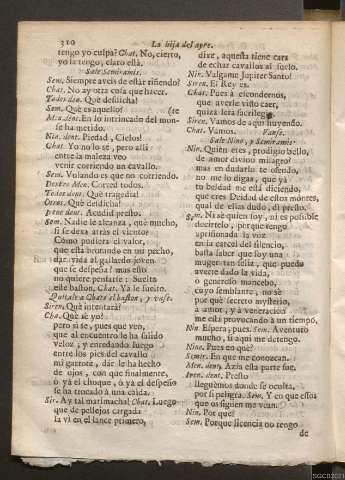 310
La hija del ayre.
tengo yo culpa? Chat. No, cierto,
yo la tengo, claro està.
Sale Semiramis.
Sem. Siempre aveis de estàr riñendo?
Chat. No ay otra cosa que hacer.
Todos den. Què desdicha!
Sem. Què es aquello? (te
Men. dent. En lo intrincado del mon-
se ha metido.
Nin. dent. Piedad, Cielos!
Chat. Yo no lo se, pero alli
entre la maleza veo
venir corriendo un cavallo.
Sem. Volando es que no corriendo.
Dentro Men. Corred todos.
Todos dent. Què tragedia!
Otros. Què desdicha!
dent. Acudid presto.
Sem. Nadie le alcanza, què mucho,
si se dexa atràs el viento?
Còmo pudiera el valor,
que està brotando en mi pecho,
dàr vida al gallardo joven,
que se despeña? mas esto
no quiere pensarse: Suelta
este baston. Chat. Yà le suelto.
Quitale à Chato el baston, y vase.
Siren. Què intentarà?
Cha. Què sè yo?
pero si se, pues que veo,
que al encuentro le ha salido
veloz, y enredando luego
entre los pies del cavallo
mi garrote, dàr le ha hecho
de ojos, con que finalmente,
ò yà el choque, ò yà el despeño
se ha trocado à una caida.
Sir. Ay tal marimacha! Chat. Luego
que de pellejos cargada
la vi en el lance primero,
dixe, aquesta tiene cara
de echar cavallos al suelo.
Nin. Valgame Jupiter Santo!
Siren. El Rey es.
Chat. Pues à escondernos,
que averle visto caer,
quiza serà sacrilegio.
Siren. Vamos de aqui huyendo.
Chat. Vamos. Vanse.
Sale Nino, y Semiramis.
Nin. Quièn eres, prodigio bello,
de amor divino milagro?
mas en dudarlo te ofendo,
no me lo digas, que yà
tu beldad me està diciendo,
que eres Deidad de estos montes,
qual de ellas dudo, di presto.
Sem. Ni sè quien soy, ni es posible
decirtelo, porque tengo
aprisionada la voz
en la carcel del silencio,
basta saber que soy una
muger tan feliz, que puedo
averte dado la vida,
ò generoso mancebo,
cuyo semblante, no sè
por què secreto mysterio,
à amor, y à veneracion
me està provocando à un tiempo.
Nin. Espera, pues. Sem. Aventuro
mucho, si aqui me detengo.
Nino. Pues en què?
Semir. En que me conozcan.
Men. dent. Azia esta parte fue.
dent. Presto
lleguemos donde se oculta,
por si peligra. Sem. Y en que essos
que os siguen me vean.
Nin. Por què?
Sem. Porque licencia no tengo
de